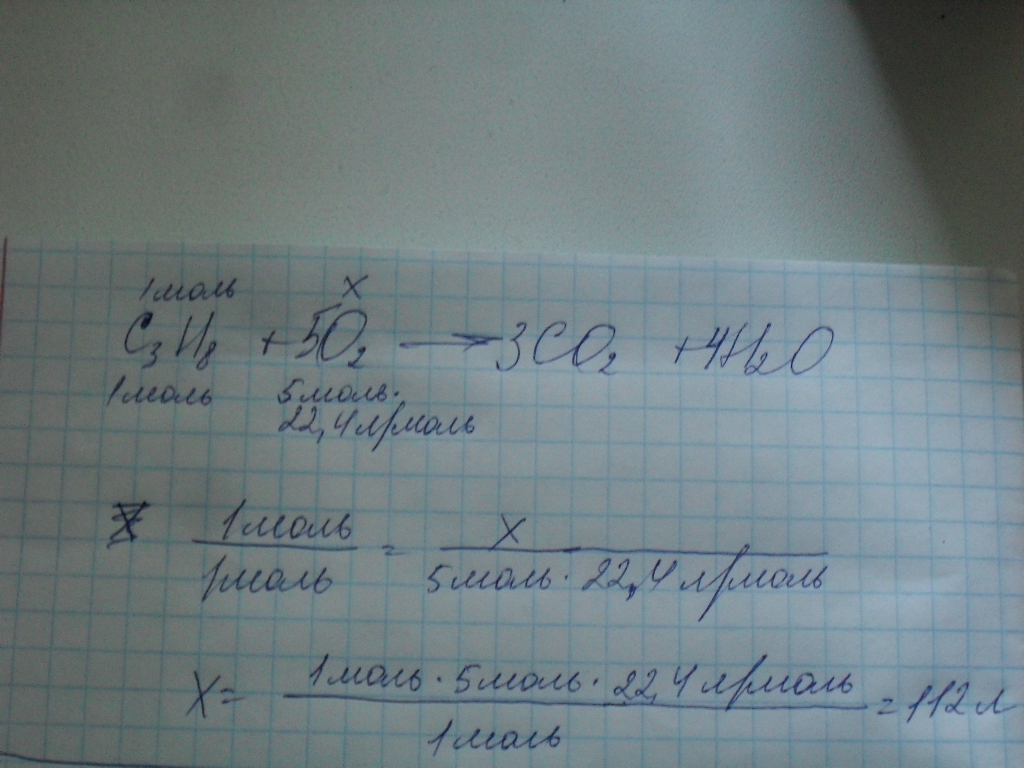 1 моль X
C₃H₈ + 5O₂ → 3CO₂ + 4H₂O
1 моль 5 моль·
22,4 л/моль
1 моль = X
1 моль 5 моль · 22,4 л/моль
X = 1 моль · 5 моль · 22,4 л/моль = 112 л
1 моль